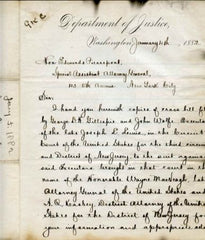 Department of Justice,
Washington, January 4th, 1882.
Hon. Edwards Pierrepont,
Special Assistant Attorney General,
New York City
Sir:
I hand you herewith copies of cross bill filed
by George D. H. Gillespie and John Wolfe Executors
of the late Joseph L. Lewis, in the Circuit
Court of the United States for the third circuit
and District of New Jersey to the suit against
said Executors brought in that court in the
name of the Honorable Wayne MacVeagh, late
Attorney General of the United States and
A. Q. Keasbey, District Attorney of the United
States for the District of New Jersey for
your information and appropriate ad